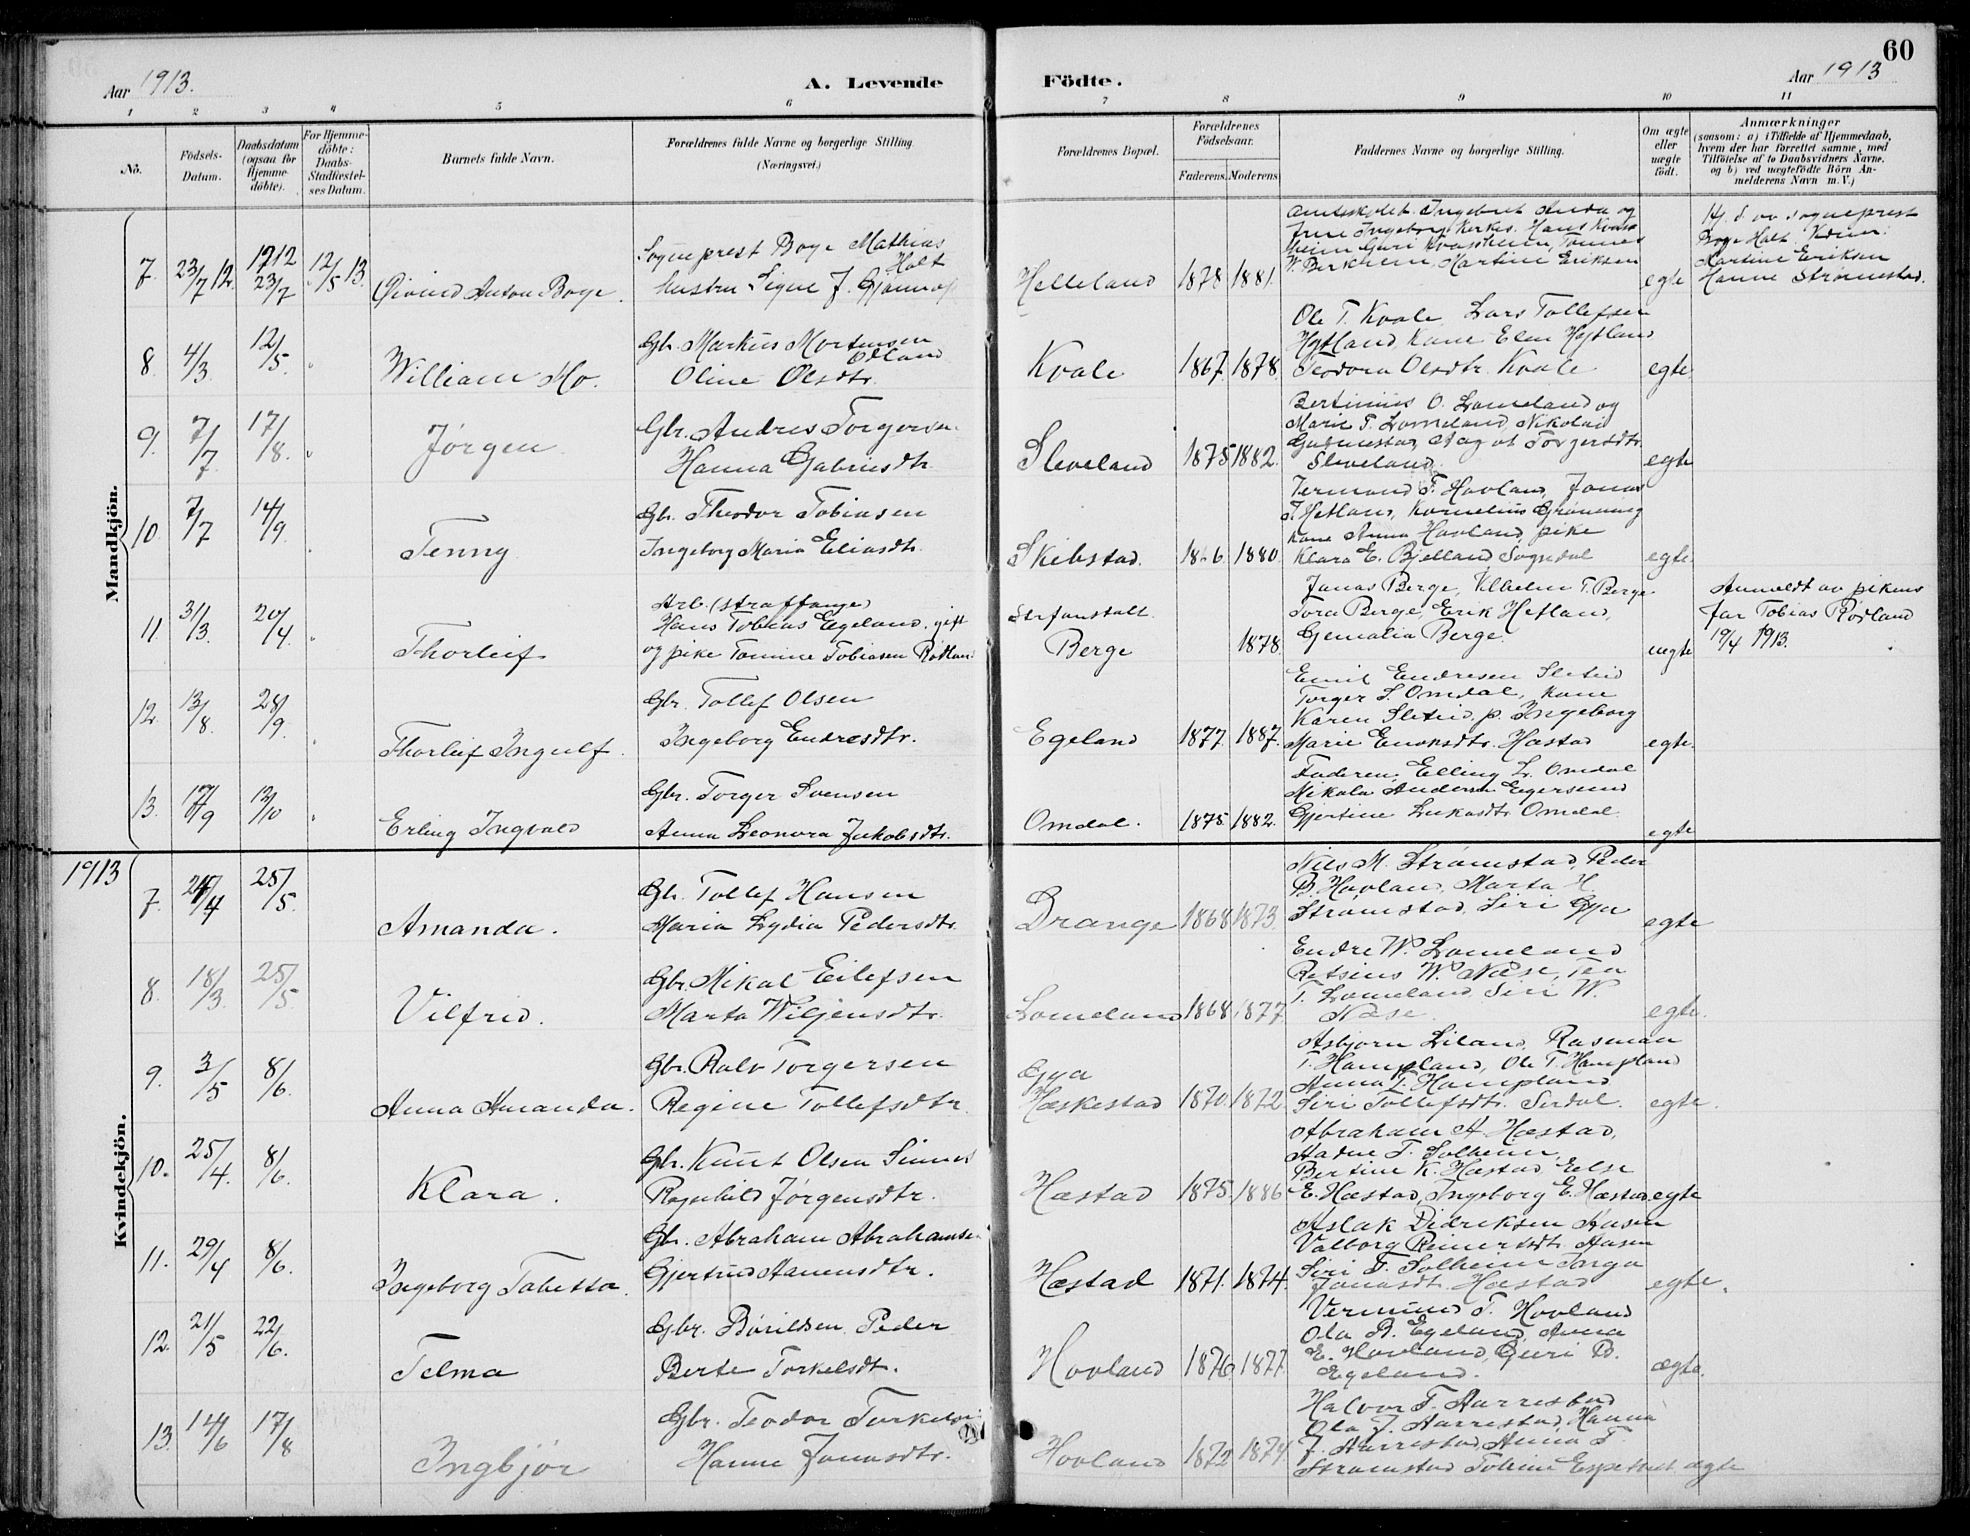 60
Aar 1913.
A. Levende
Födte.
Aar 1913
1 2 3 4 5 6 7 8 9 10 11
No.
Födsels-Datum.
Daabsdatum (ogsaa for Hjemmedöbte).
For Hjemmedöbte: Daabs-Stadfæstelses Datum.
Barnets fulde Navn.
Forældrenes fulde Navne og borgerlige Stilling. (Næringsvei.)
Forældrenes Bopæl.
Forældrenes Födselsaar.
Faderens. Moderens.
Faddernes Navne og borgerlige Stilling.
Om ægte eller uægte födt.
Anmærkninger
(saasom: a) i Tilfælde af Hjemmedaab, hvem der har forrettet samme, med Tilföielse af to Daabsvidners Navne, og b) ved uægtefödte Börn Anmelderens Navn m. V.)
Mandkjön.
7. 23/7 12. 1912 23/7 12/5 13.
Øivind Anton Boye.
Sogneprest Boye Mathias Holt
hustru Signe J.
Helleland 1878 1881.
Ingebret Anda og
Frue Ingeborg Hans
Guri Kvassheim, Tønnes
V. Birkrem, Martine Eriksen
egte
Hj. d. av sogneprest
Boye Holt.
Martine Eriksen
Hanne Strømestad.
8. 4/3. 12/5.
William Mo.
Gbr. Markus Mortensen Odland
Oline Olsdtr.
Kvale 1867. 1878.
Ole T. Kvale, Lars Tollefsen
Hegtland, Kane Elen Hegtland
Teodora Olsdtr. Kvale
egte
9. 7/7 17/8.
Jørgen
Gbr. Andres Torgersen
Hanna Gabrielsdtr
Sleveland 1875 1882.
Bertinius O. Lomeland og
Marie T. Lomeland, Nikolai
Gudmestad, Torgersdtr.
Sleveland.
egte
10. 7/7 14/9.
Tenny.
Gbr. Theodor Tobiasen
Ingeborg Maria Eliasdtr.
Skibstad. 1880.
T. Hovland, Jonas
T. Hetland, Kornelius Grønning
Kone Anna Hovland, pike
Klara E. Bjelland, Sogndal
egte.
11. 31/3. 20/4.
Thorleif
Arb. (straffange)
Hans Tobias Egeland. gift
og pike Tomine Tobiasen Rodland
Strfanstalt
Berge 1878.
Jonas Berge, Vilhelm T. Berge
Tora Berge, Erik Hetland,
Gjemalia Berge.
uegte
Anmeldt av pikens
far Tobias Rodland
19/4 1913.
12. 13/8. 28/9.
Thorleif Ingulf.
Gbr. Tollef Olsen
Ingeborg Endresdtr.
Egeland 1877. 1887.
Emil Endresen Sletid
Torger S. Omdal, kone
Karen Sletid, p. Ingeborg
Marie Hæstad
egte.
13. 17/9 12/10
Erling Ingvald
Gbr. Torger Svensen
Anna Leonora Jakobsdtr.
Omdal. 1875. 1882.
Faderen, Elling L. Omdal
Mikala Andersen Egersund
Gjertine Lukasdtr Omdal
egte
1913
Kvindekjön.
7. 24/4 25/5.
Amanda.
Gbr. Tollef Hansen
Maria Lydia Pedersdtr.
Drange 1868 1873.
Nils M. Strømstad, Peder
B. Hovland, Marta H.
Strømstad, Siri Gya
egte
8. 18/3. 25/5
Vilfrid.
Gbr. Mikal Eilefsen
Marta Wiljensdtr.
Lomeland 1868 1877
Endre W. Lomeland
Rasmus W. Næse, Tea
T. Lomeland, Siri W.
Næse.
egte.
9. 3/5 8/6.
Anna Amanda.
Gbr. Rolv Torgersen
Regine Tollefsdtr.
Gya
Heskestad 1870. 1872.
Asbjørn Liland, Rasman
T. Hompland, Ole T. Hompland
Anna T. Hompland
Siri Tollefsdtr. Sirdal.
egte.
10. 25/4. 8/6.
Klara.
Gbr. Knut Olsen Sinnes
Ragnhild Jørgensdtr.
Hæstad 1875. 1886
Abraham A. Hæstad,
Aadne T. Solheim,
Bertine K. Hæstad, Else
E. Hæstad, Ingeborg E. Hæstad
egte
11. 29/4 8/6.
Ingeborg Tabetta.
Gbr. Abraham Abrahamsen
Gjertrud Aanensdtr.
Hæstad 1871. 1874.
Aslak Didriksen Aasen
Valborg Reinertsdtr. Aasen
Siri T. Solheim Inga
Jonasdt. Hæstad
egte.
12. 21/5 22/6.
Telma
Gbr. Børildsen Peder
Berte Torkelsdt.
Hovland 1876. 1877.
Vermund T. Hovland
Ola B. Egeland, Anna
E. Hovland, Guri B.
Egeland.
ægte.
13. 14/6 17/8
Ingbjør
Gbr. Teodor Torkelsen
Hanne Jonasdtr.
Hovland 1872 1874.
Halvor T. Aarrestad
Ola J. Aarrestad, Hanna
J. Aarrestad, Anna T
Strømstad Toline
ægte